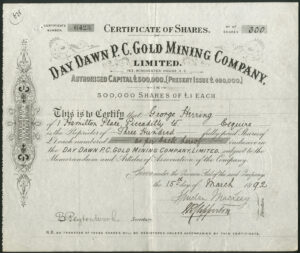 CERTIFICATE NUMBER
CERTIFICATE OF SHARES.
Nº OF SHARES 300
DAY DAWN P.C. GOLD MINING COMPANY,
LIMITED.
AUTHORISED CAPITAL £500,000. (PRESENT ISSUE £480,000)
IN
500,000 SHARES OF £1 EACH
This is to Certify that George Herring
Hamilton Place, Piccadilly W Esquire
is the Proprietor of Three Hundred fully paid Shares
numbered as per back hereof inclusive in
the DAY DAWN P.C. GOLD MINING COMPANY, LIMITED, subject to the
Memorandum and Articles of Association of the Company.
Given under the Common Seal of the said Company
the 15th day of March 1892
Secretary.
N.B. NO TRANSFER OF THESE SHARES WILL BE REGISTERED UNLESS ACCOMPANIED BY THIS CERTIFICATE.